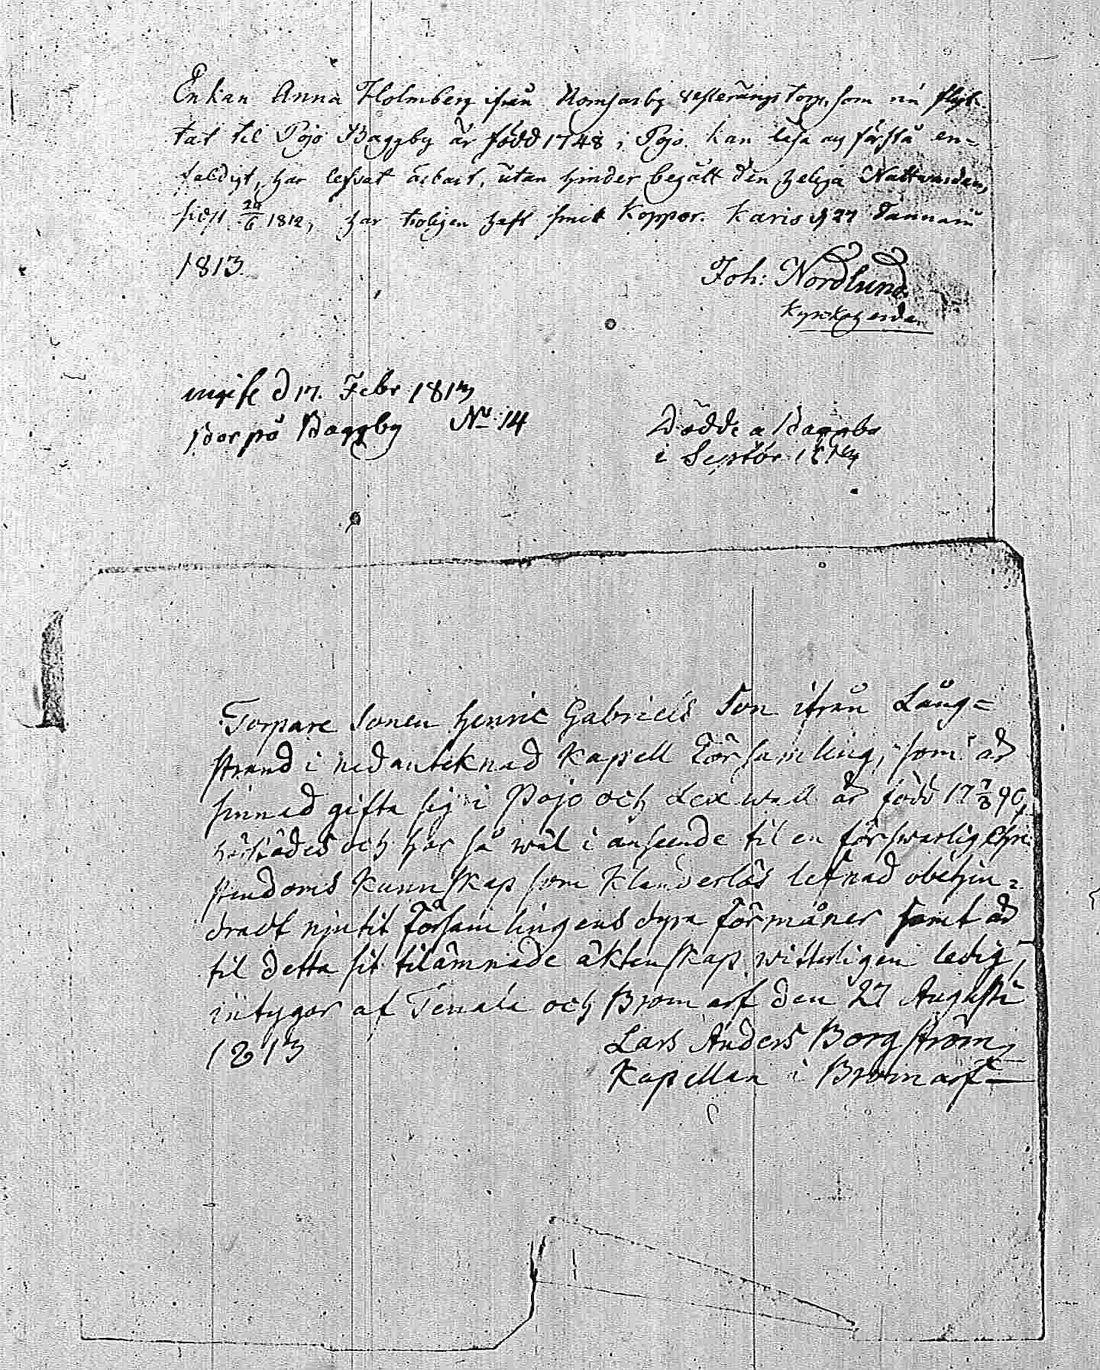 Enkan Anna Holmberg ifrån Romsarby Westerängs Torp, som nu flyt-
tat til Pojo Baggby är född 1748 i Pojo. kan läsa och förstå en-
faldigt, har lefvat ärbart, utan hinder begått den helga Nattvarden,
sidst 20/6 1812, har troligen haft smit Koppor. Karis d 27 Januarii
1813.
Joh: Nordlund.
Kyrkoherde.
d 17. Febr 1813
Bor på Baggby No 14
Dödde a Baggby
i 1813
Torpare Sonen Henric Gabriels Son ifrån Lång=
strand i nedanteknad Kapell Församling, som är
sinnad gifta sig i Pojo och Lexwall är född 17 7/8 90,
härstädes och har så wäl i anseende til en förswarlig Chri
stendoms Kunnskap som Klanderlös lefnad obehin=
dradt njutit Församlingens dyra förmåner samt är
til detta sit tilämnade äktenskap witterligen ledig,
intygar af Tenala och Bromarf den 27 Augusti
1813
Lars Anders Borgström,
Kapellan i Bromarf